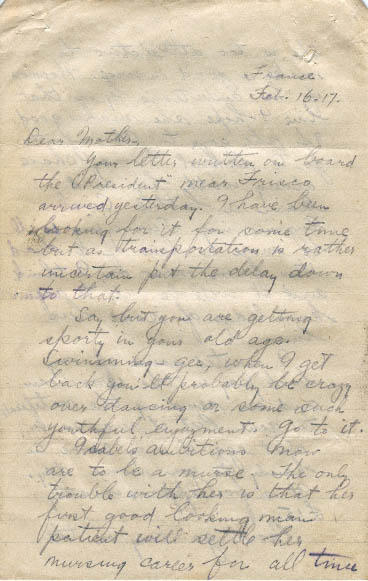 France
Feb. 16-17.
Dear Mother,
Your letter written on board
the "President" near Frisco
arrived yesterday. I have been
looking for it for some time
but as transportation is rather
uncertain put the delay down
to that.
Say but you are getting
sporty in your old age.
Swimming - gee, when I get
back you'll probably be crazy
over dancing or some such
youthful enjoyment. Go to it.
Isabel's ambitions now
are to be a nurse. The only
trouble with her is that her
first good looking man
patient will settle her
nursing career for all time